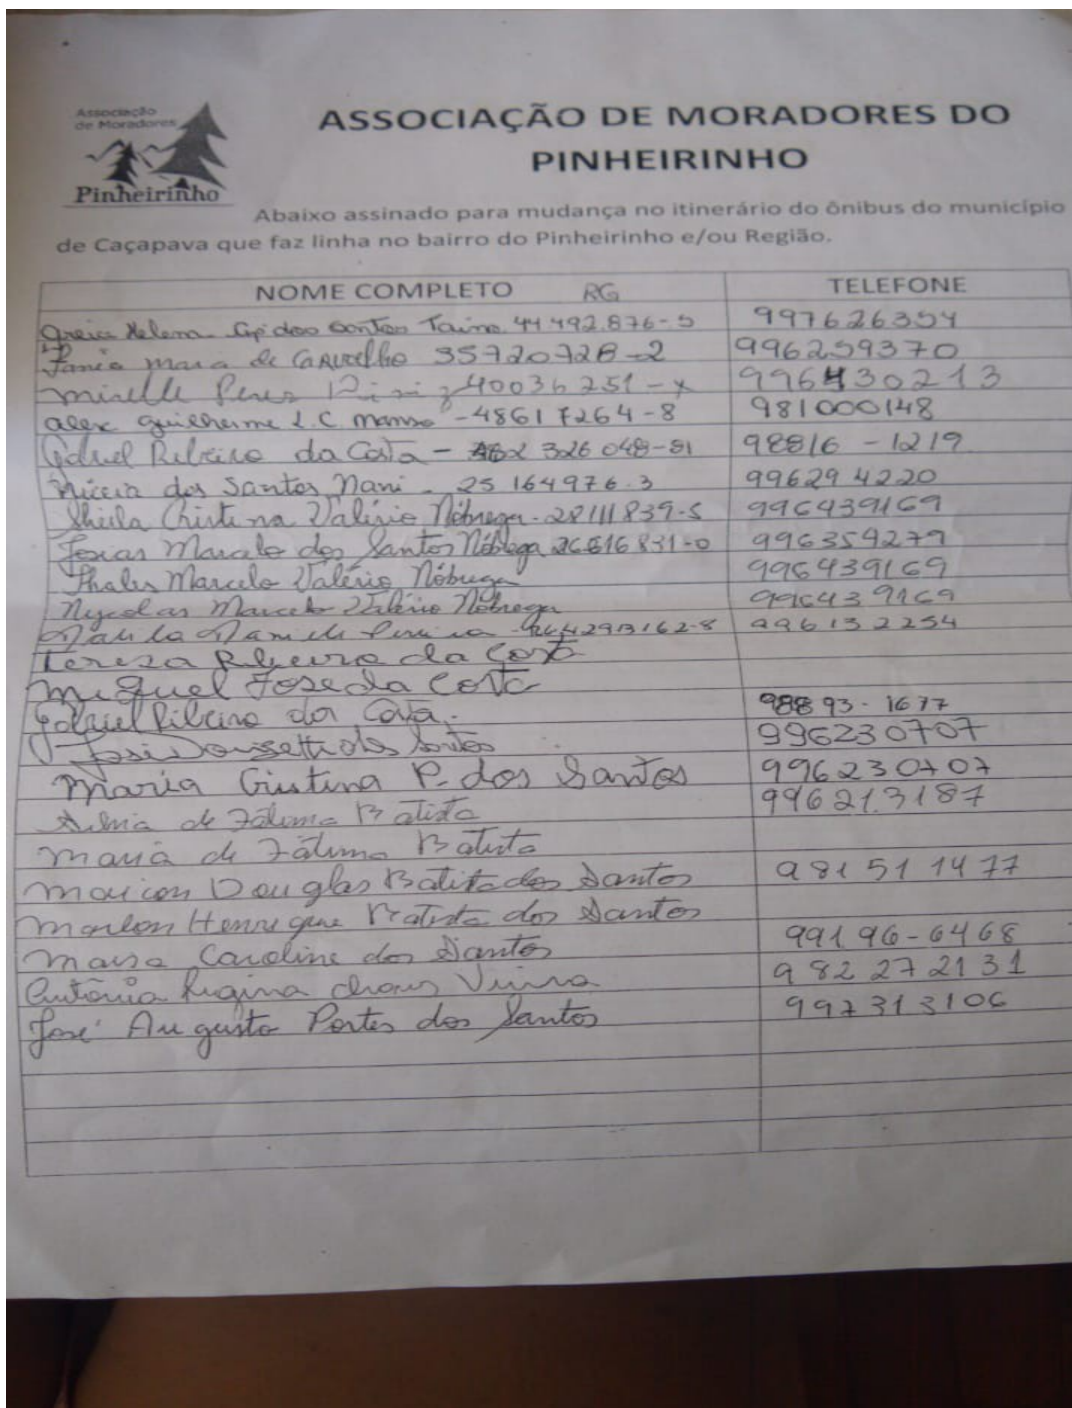 Associação
de Moradores
Pinheirinho
ASSOCIAÇÃO DE MORADORES DO
PINHEIRINHO
Abaixo assinado para mudança no itinerário do ônibus do município
de Caçapava que faz linha no bairro do Pinheirinho e/ou Região.
NOME COMPLETO RG TELEFONE
Helena dos Santos 44492.876-5 997626354
Tania Mara de Carvalho 35720728-2 996259370
Mirelle Peres 40036251-x 996430213
alex guilherme L.C. manso -48617264-8 981000148
Gabriel Ribeiro da Costa - 326 048-81 98816-1219
Nicéia dos Santos Nani - 25 164976-3 996294220
Sheila Christina Valério Nóbrega - 28111839-5 996439169
Josias Marcelo dos Santos Nóbrega 26616831-0 996359279
Thales Marcelo Valério Nóbrega 996439169
Nycolas Marcelo Valério Nóbrega 996439169
Pereira 996132254
Tereza Ribeiro da Costa
Miguel Jose da Costa
Gabriel Ribeiro da Costa. 98893-1677
José Donizetti dos Santos 996230707
Maria Cristina P. dos Santos 996230707
de Fátima Batista 996213187
Maria de Fátima Batista
Maicon Douglas Batista dos Santos 981511477
Marlon Henrique Batista dos Santos
Maisa Caroline dos Santos 99196-6468
Antônia Regina Vieira 982272131
José Augusto Portes dos Santos 997313106